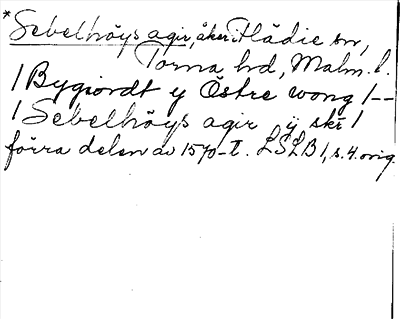 *Sebelhöys agir, åker i Flädie sn,
Torna hd, Malm. l.
/ Bygiordt y Östre wong /--
/ Sebelhöys agir ÿ skr /
förra delen av 1570-t. LSLB 1, s. 4. orig.